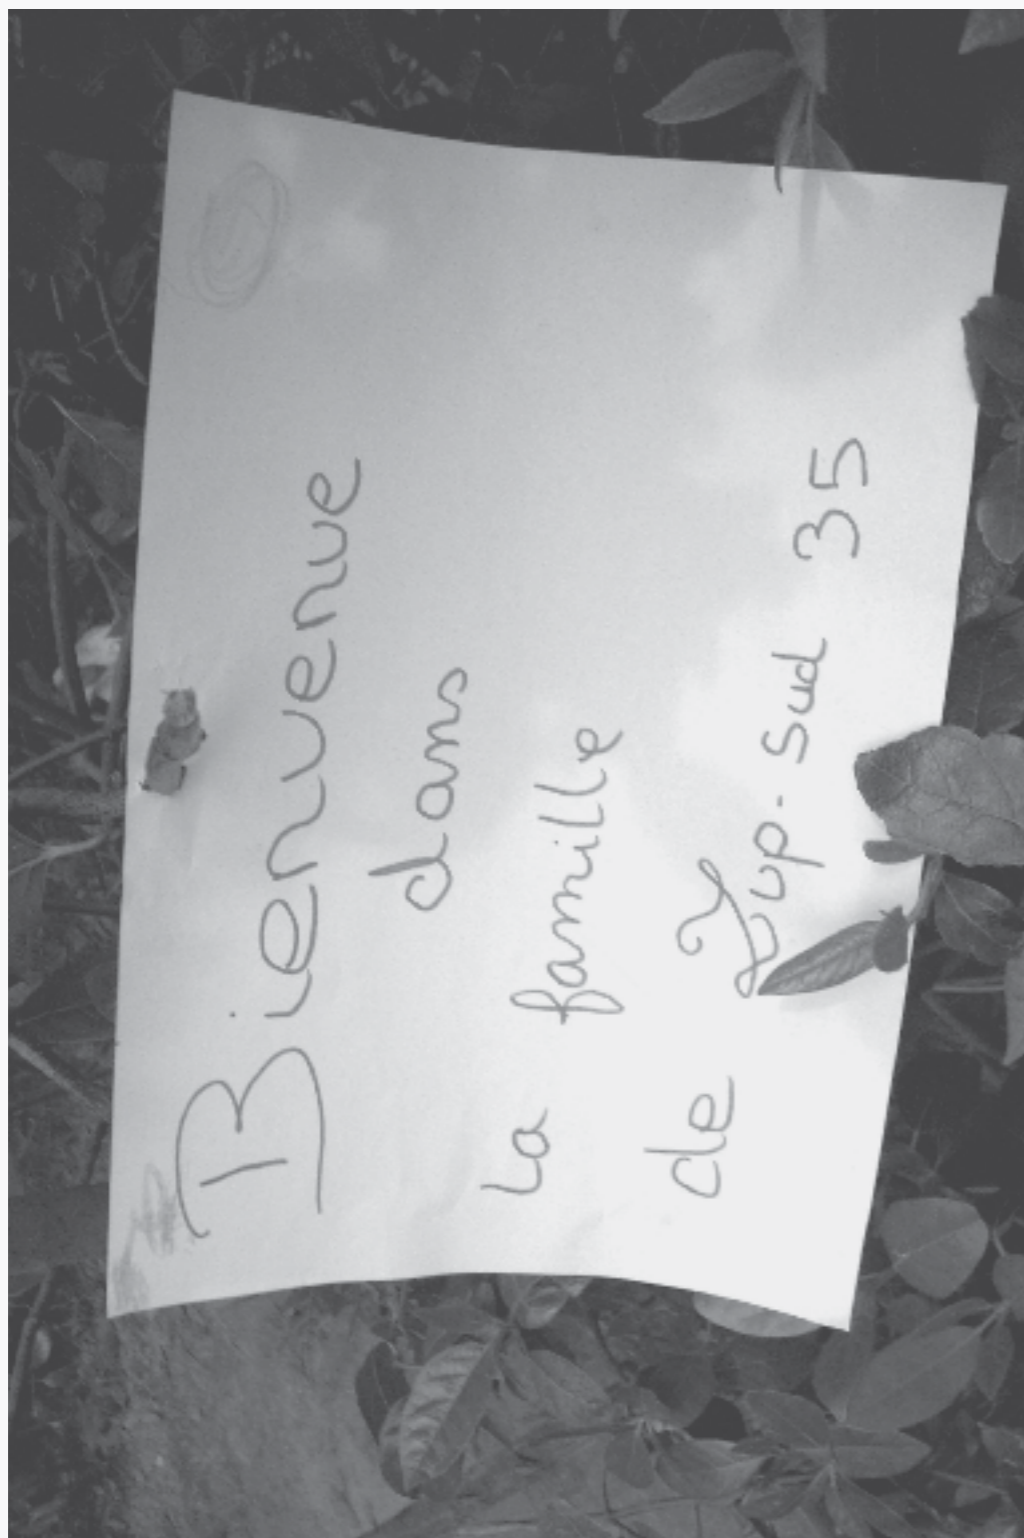 Bienvenue
dans
La famille
de Zup-Sud 35